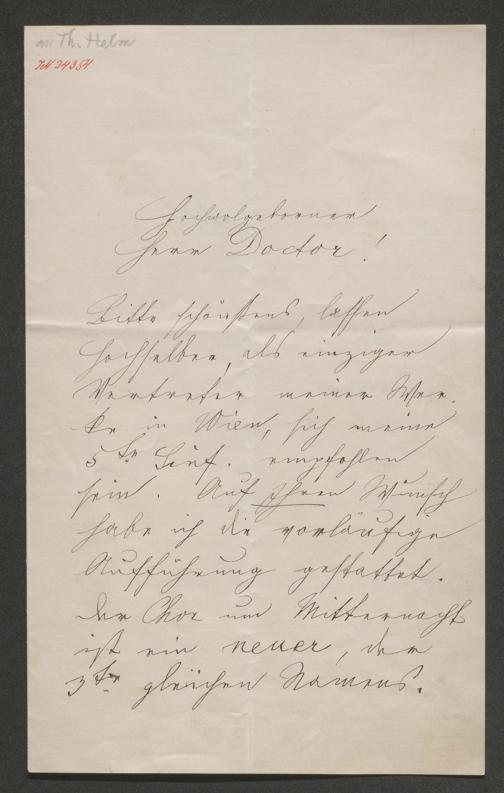 an Th. Helm
IN 34354
Hochwolgeborner
Herr Doctor!
Bitte schönstens, lassen
Hochselber, als einziger
Vertreter meiner Wer-
ke in Wien, sich meine
5te Sinf. empfohlen
sein. Auf Ihren Wunsch
habe ich die vorläufige
Aufführung gestattet.
Der Chor um Mitternacht
ist ein neuer, der
3te gleichen Namens.